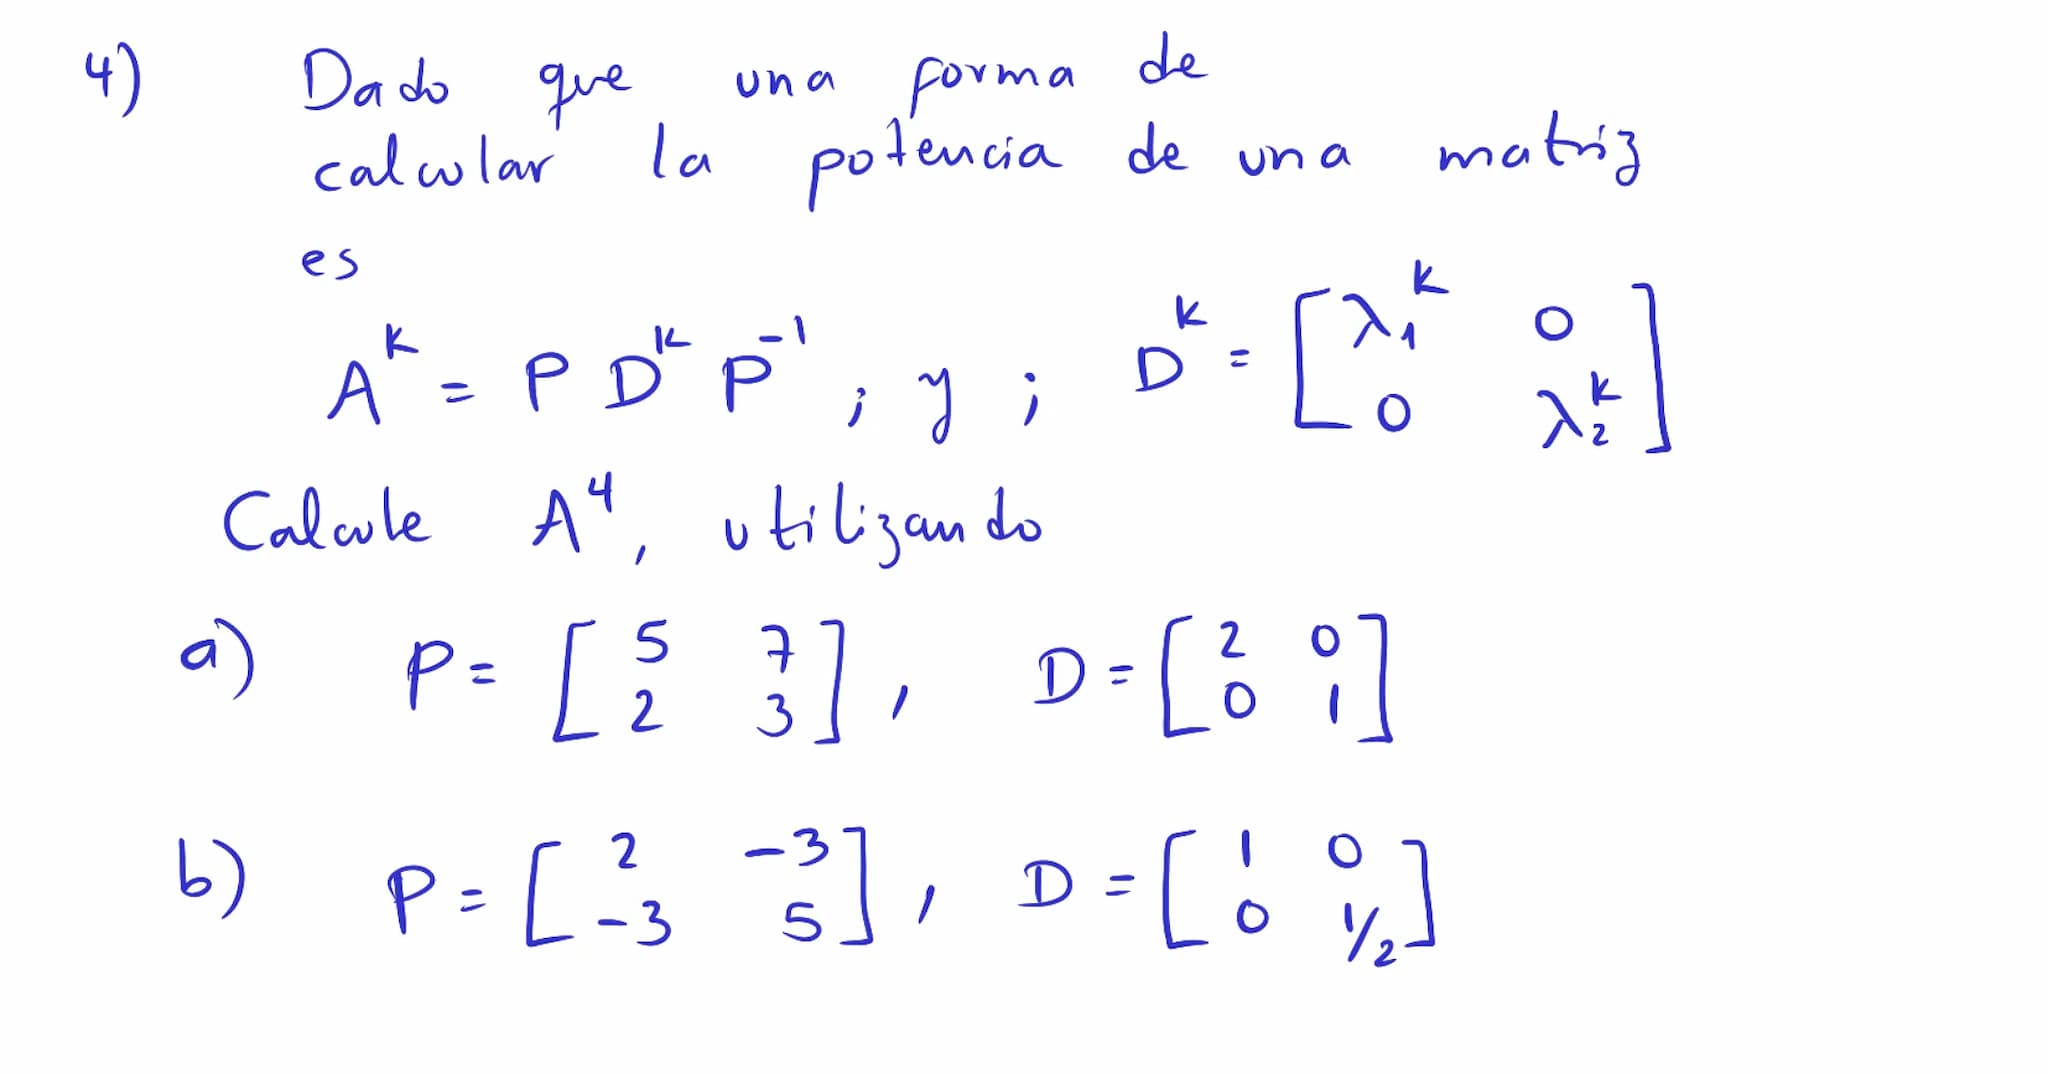 4) Dado que una forma de
calcular la potencia de una matriz
es
A^k = P D^k P^-1 ; y ; D^k = [λ₁^k 0
0 λ₂^k]
Calcule A^4, utilizando
a) P = [5 7
2 3], D = [2 0
0 1]
b) P = [2 -3
-3 5], D = [1 0
0 1/2]